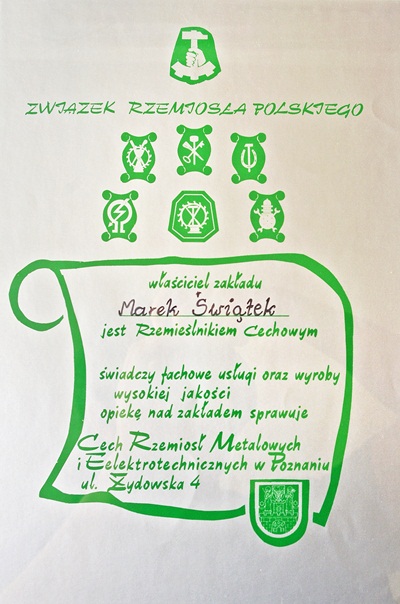 ZWIĄZEK RZEMIOSŁA POLSKIEGO
właściciel zakładu
Marek Świątek
jest Rzemieślnikiem Cechowym
świadczy fachowe usługi oraz wyroby
wysokiej jakości
opiekę nad zakładem sprawuje
Cech Rzemiosł Metalowych
i Eelektrotechnicznych w Poznaniu
ul. Żydowska 4